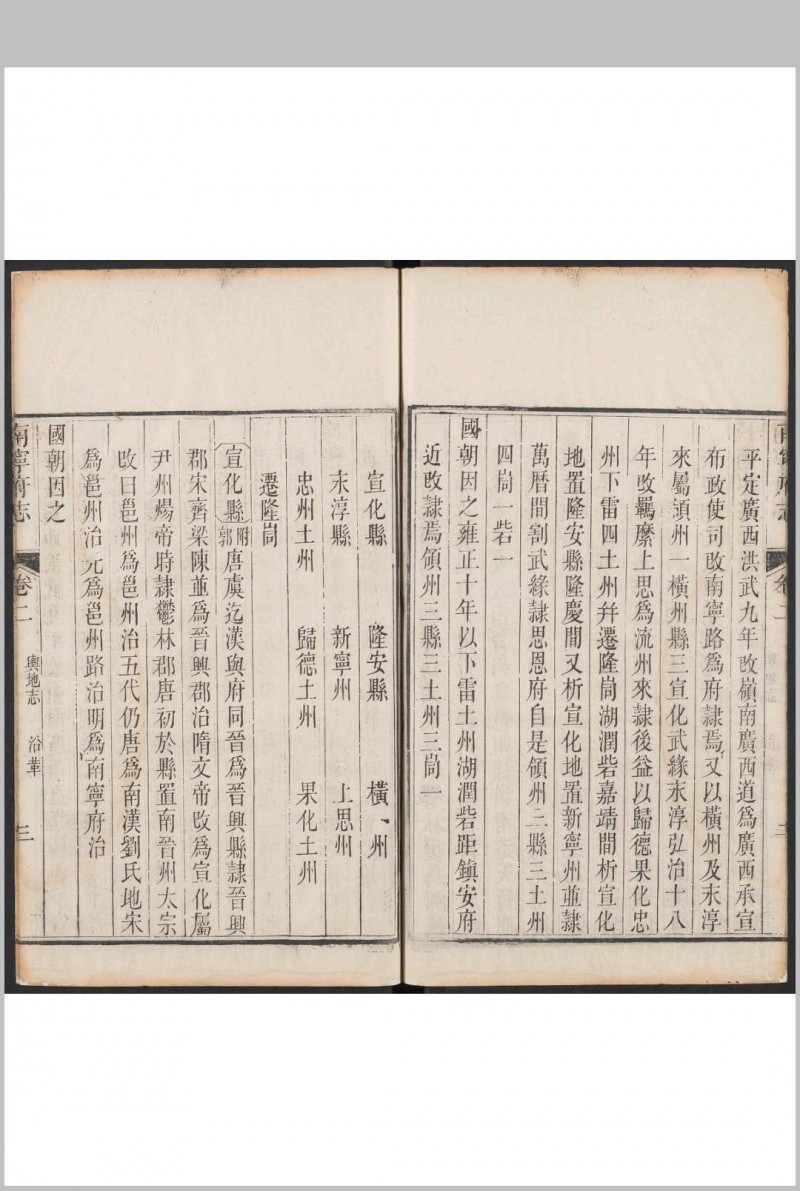 南寧府志
卷二
平定廣西洪武九年改嶺南廣西道爲廣西承宣
布政使司改南寧路爲府隷焉又以橫州及永淳
來屬領州一橫州縣三宣化武緣永淳弘治十八
年改羈縻上思爲流州來隷後益以歸德果化忠
州下雷四土州幷遷隆峝湖潤砦嘉靖間析宣化
地置隆安縣隆慶間又析宣化地置新寧州並隷
萬曆間割武緣隷思恩府自是領州三縣三土州
四峝一砦一
國朝因之雍正十年以下雷土州湖潤砦距鎮安府
近改隷焉領州三縣三土州三峝一
宣化縣 隆安縣 橫州
永淳縣 新寧州 上思州
忠州土州 歸德土州 果化土州
遷隆峝
宣化縣附郭唐虞迄漢與府同晉爲晉興縣隷晉興
郡宋齊梁陳並爲晉興郡治隋文帝改爲宣化屬
尹州煬帝時隷鬱林郡唐初於縣置南晉州太宗
改曰邕州爲邕州治五代仍唐爲南漢劉氏地宋
爲邕州治元爲邕州路治明爲南寧府治
國朝因之
南寧府志
卷二 輿地志 沿革 三